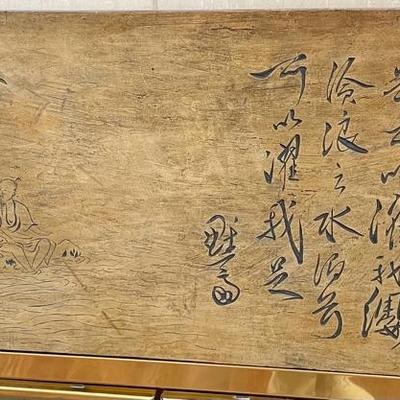 兮可以濯我纓
滄浪之水濁兮
可以濯我足